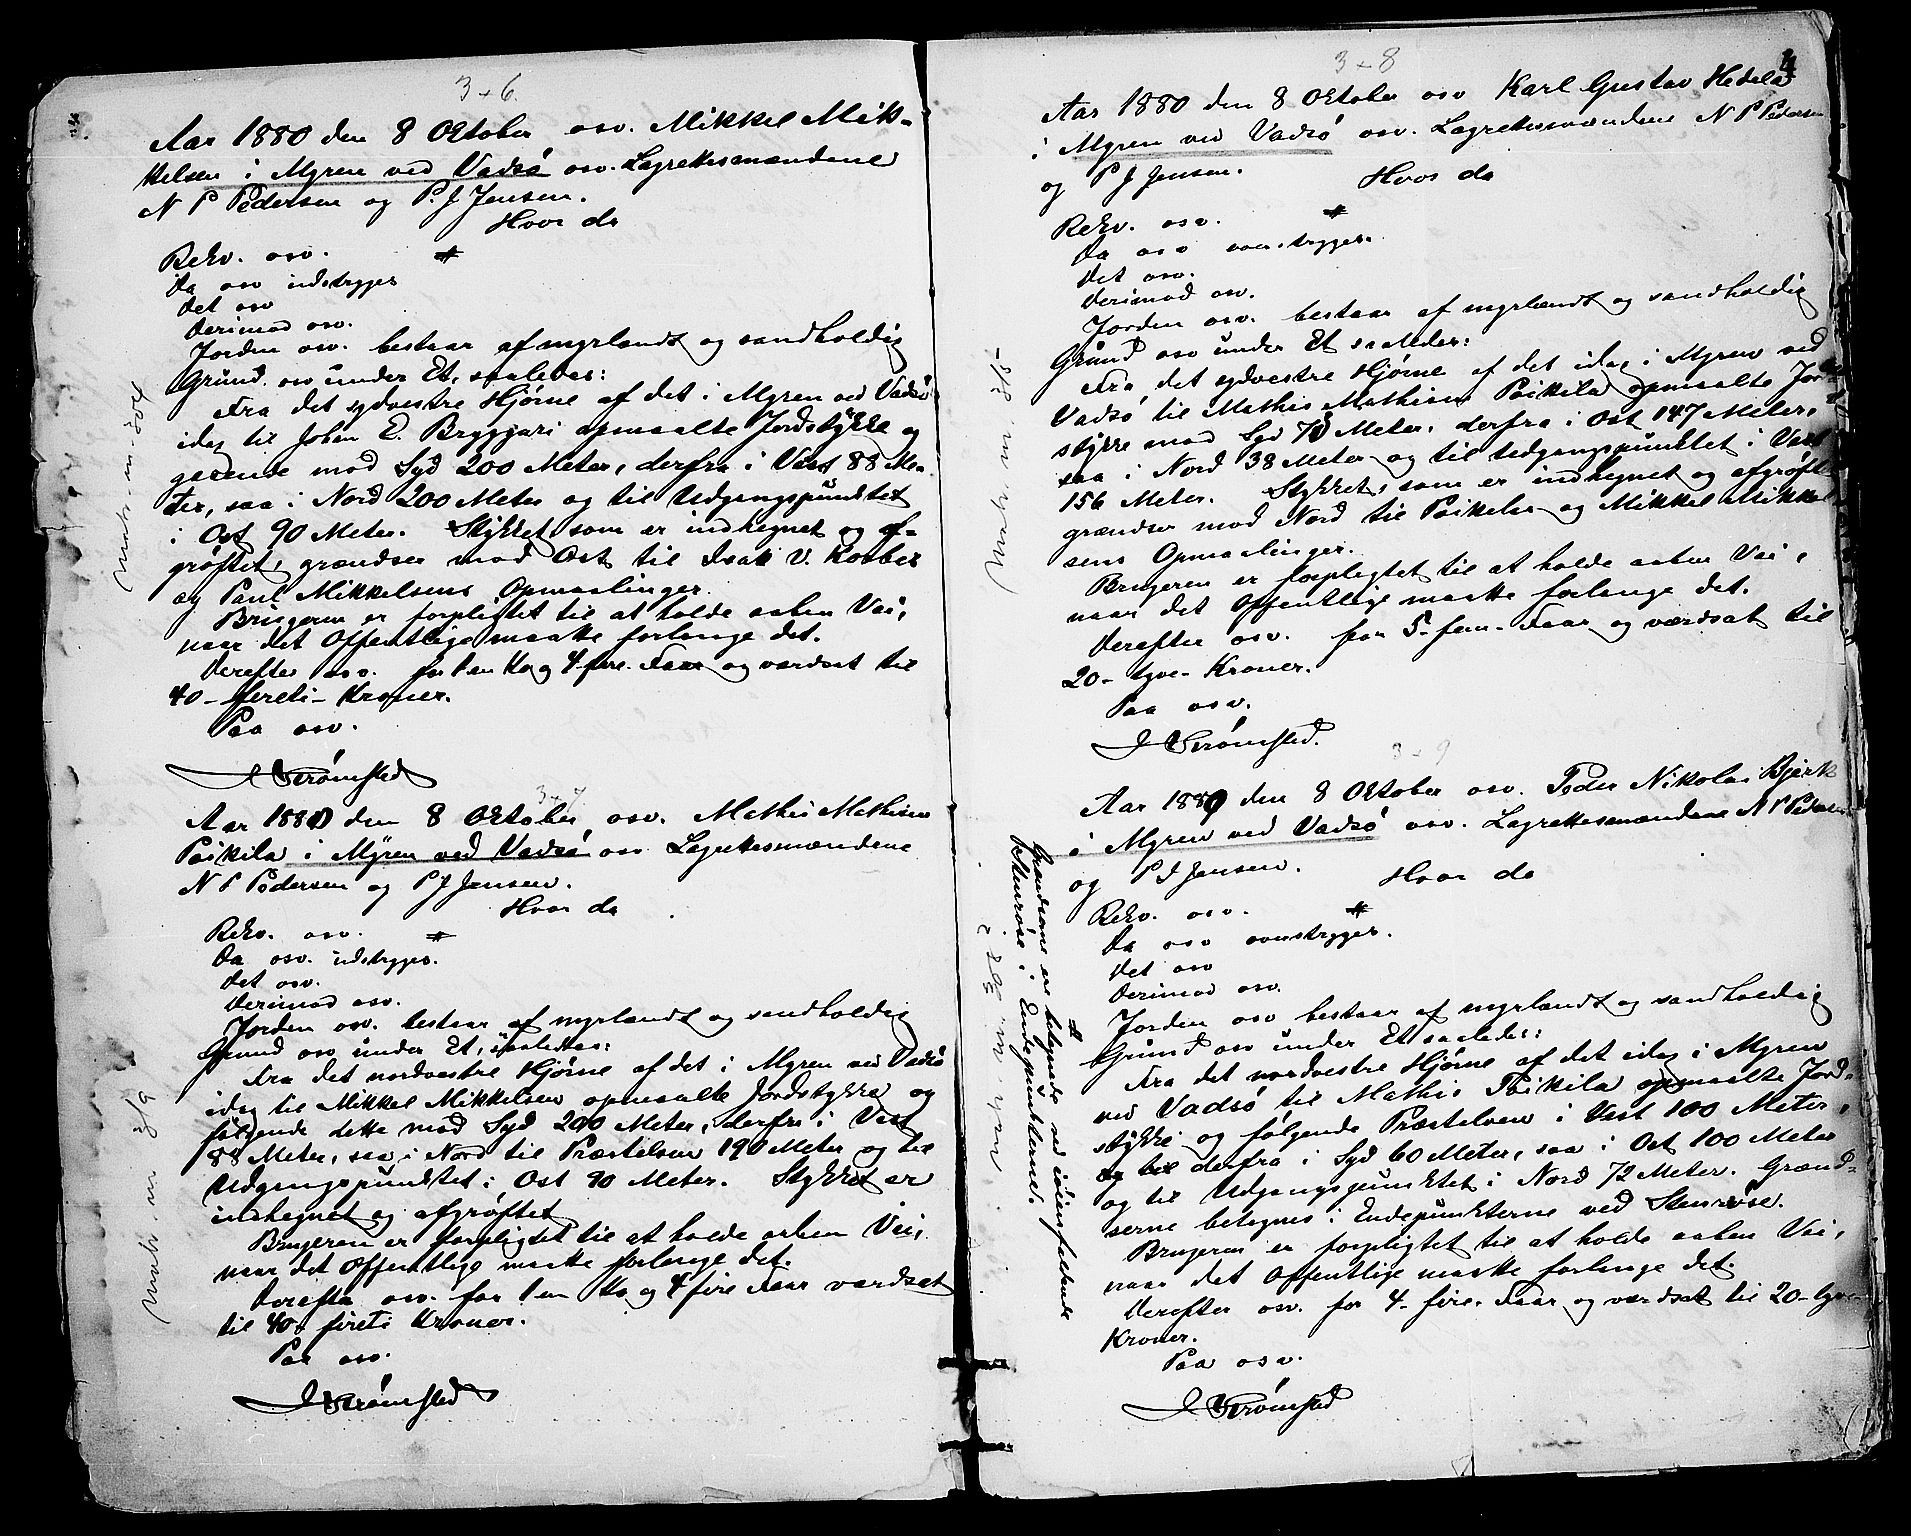 3 + 6.
Aar 1880 den 8 Oktober osv. Mikkel Mik-
kelsen i Myren ved Vadsö osv. Lagrettesmændene
N P Pedersen og P. J Jensen.
Hvor da
Rekv. osv. #
Da osv udstryges
Det osv
Derimod osv.
Jorden osv. bestaar af myrlændt og sandholdig
Grund osv under Et, saaledes:
Fra det sydvestre Hjörne af det i Myren ved Vadsö
idag til Johan E. Bryggari opmaalte Jordstykke og
gaaende mod Syd 200 Meter, derfra i Vest 88 Me-
ter, saa i Nord 200 Meter og til Udgangspunktet
i Ost 90 Meter. Stykket som er indhegnet og af-
gröftet, grændser mod Ost til Isak V. Koobes
og Paul Mikkelsens Opmaalinger.
Brugeren er forpligtet til at holde aaben Vei,
naar det Offentlige maatte forlange det.
Derefter osv. for 1 en Ko og 4-fire-Faar og værdsat til
40-fireti-Kroner.
Paa osv.
J Strömsted
3 + 7
Aar 1880 den 8 Oktober osv. Mathis Mathisen
Poikila i Myren ved Vadsö osv Lagrettesmændene
N P Pedersen og P J Jensen.
Hvor da
Rekv. osv. #
Da osv. udstryges.
Det osv.
Derimod osv.
Jorden osv. bestaar af myrlændt og sandholdig
Grund osv under Et, saaledes:
Fra det nordvestre Hjörne af det i Myren ved Vadsö
idag til Mikkel Mikkelsen opmaalte Jordstykke og
fölgende dette mod Syd 200 Meter, derfra i Vest
88 Meter, saa i Nord til Præstelven 190 Meter og til
Udgangspunktet i Ost 90 Meter. Stykket er
indhegnet og afgröftet
Brugeren er forpligtet til at holde aaben Vei,
naar det Offentlige maatte forlange det.
Derefter osv. for 1 en Ko og 4 fire Faar værdsat
til 40-fireti Kroner.
Paa osv.
J Strömsted
3 + 8
4
Aar 1880 den 8 Oktober osv Karl Gustav Hedela
i Myren ved Vadsö osv. Lagrettesmændene N P Pedersen
og P J Jensen. Hvor da
Rekv. osv. #
Da osv overstryges.
Det osv.
Derimod osv.
Jorden osv. bestaar af myrlændt og sandholdig
Grund osv under Et saaledes:
Fra det sydvestre Hjörne af det idag i Myren ved
Vadsö til Mathis Mathisen Poikila opmaalte Jord-
stykke mod Syd 70 Meter, derfra i Ost 147 Meter,
saa i Nord 38 Meter og til Udgangspunktet i Vest
156 Meter. Stykket, som er indhegnet og afgröftet
grændser mod Nord til Poikelas og Mikkel Mikkel
sens Opmaalinger.
Brugeren er forpligtet til at holde aaben Vei,
naar det Offentlige maatte forlange det.
Derefter osv. for 5-fem-Faar og værdsat til
20-tyve-Kroner.
Paa osv.
J Strömsted.
3 + 9
Aar 1880 den 8 Oktober osv. Peder Nikolai Bjerk
i Myren ved Vadsö osv. Lagrettesmændene N P Pedersen
og P J Jensen. Hvor da
Rekv. osv. #
Da osv overstryges.
Det osv
Derimod osv.
Jorden osv bestaar af myrlændt og sandholdig
Grund osv under Et saaledes:
Fra det nordvestre Hjörne af det idag i Myren
ved Vadsö til Mathis Poikila opmaalte Jord-
stykke og fölgende Præstelven i Vest 100 Meter,
og til derfra i Syd 60 Meter, saa i Ost 100 Meter
og til Udgangspunktet i Nord 72 Meter. Grænd-
serne betegnes i Endepunkterne ved Stenröse.
Brugeren er forpligtet til at holde aaben Vei,
naar det Offentlige maatte forlange det.
Derefter osv. for 4-fire-Faar og værdsat til 20-tyve-
Kroner.
Paa osv.
J Strömsted
# Grændserne ere betegnede ved iöienfaldende
Stenröse i Endepunkterne.